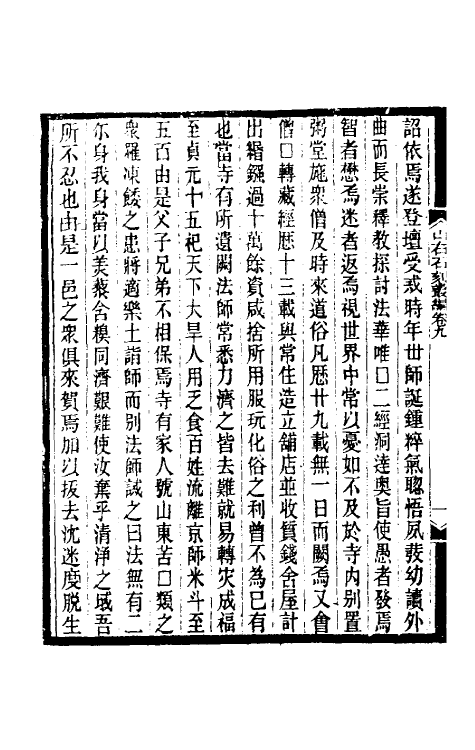 山右石刻叢編卷九
一
詔依焉遂登壇受戒時年卅師誕鍾粹氣聰悟夙發幼讀外
曲而長崇釋教探討法華唯□二經洞達奧旨使愚者發焉
智者懋焉迷者返焉視世界中常以憂如不及於寺内别置
粥堂施衆僧及時來道俗凡歴廿九載無一日而闕焉又會
僧□轉藏經歴十三載與常住造立舖店並收質錢舍屋計
出緡鏹過十萬餘資咸捨所用服玩化俗之利曾不為已有
也當寺有所遺闕法師常悉力濟之皆去難就易轉灾成福
至貞元十五祀天下大旱人用乏食百姓流離京師米斗至
五百由是父子兄弟不相保焉寺有家人號山東苦□類之
衆羅凍餒之患將適樂土詣師而别法師誡之曰法無有二
尓身我身當以美藜含糗同濟艱難使汝棄乎清淨之域吾
所不忍也由是一邑之衆俱來賀焉加以拔去沈迷度脱生